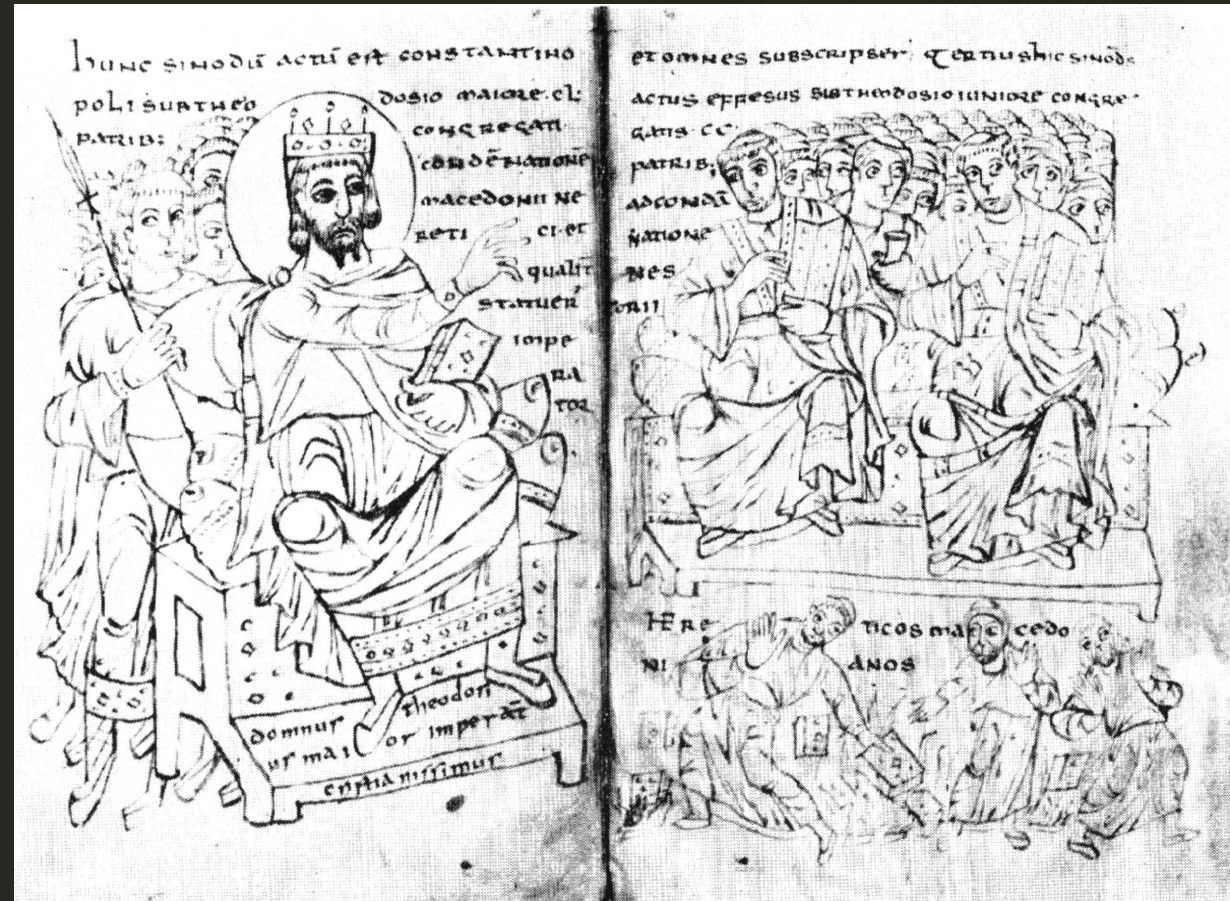 hunc sinodū actū est constantino
poli subtheo dosio maiore·cl·
patrib: congregati
condēnationē
macedonii ne
reti ci·et
qualit̄
statuer̄
impe
ra
tor
domnus theodosi
us mai or imperat̄
et omnes subscripser; tertius hic sinod
actus effesus subtheodosio iuniore congre
gatis cc
patrib;
adcondā
natione
nes
torii
here ticos ma cedo
ni anos